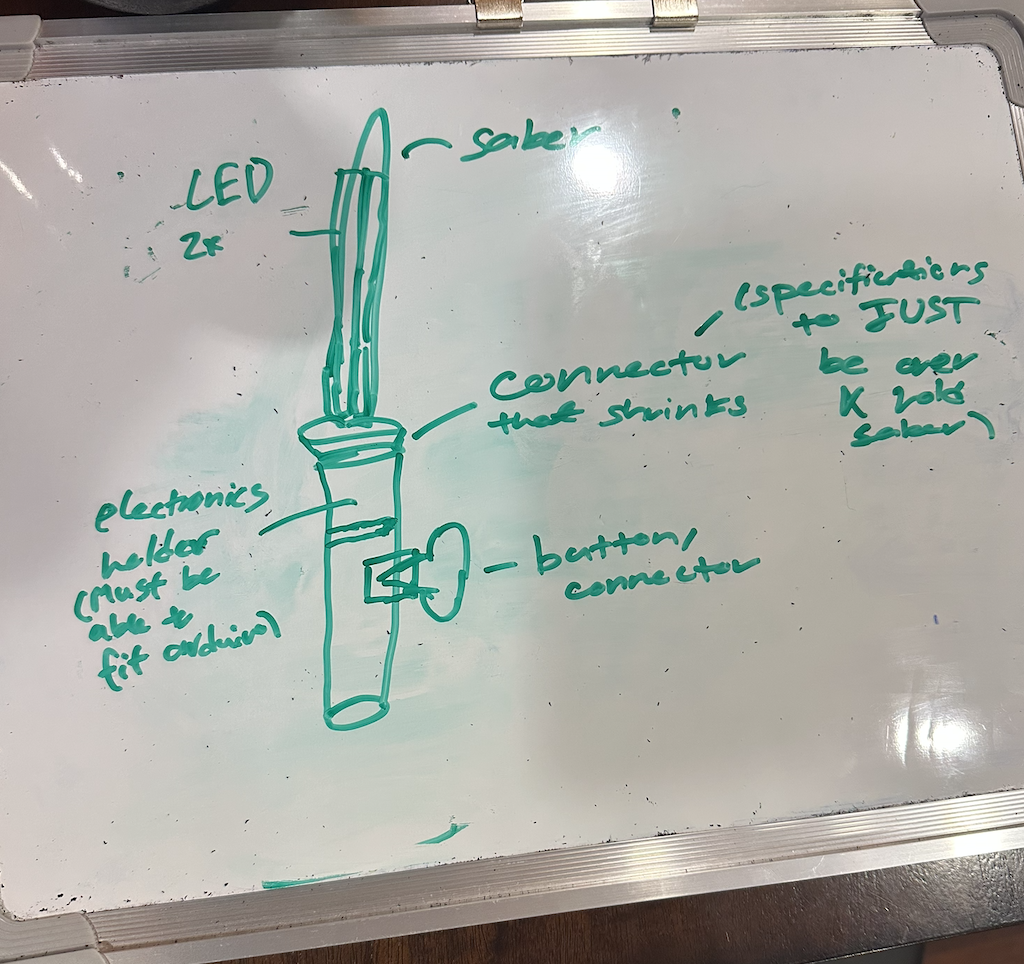 saber
LED
2x
(specifications
to JUST
be over
K hold
saber)
connector
that shrinks
electronics
holder
(Must be
able to
fit arduino)
button/
connector